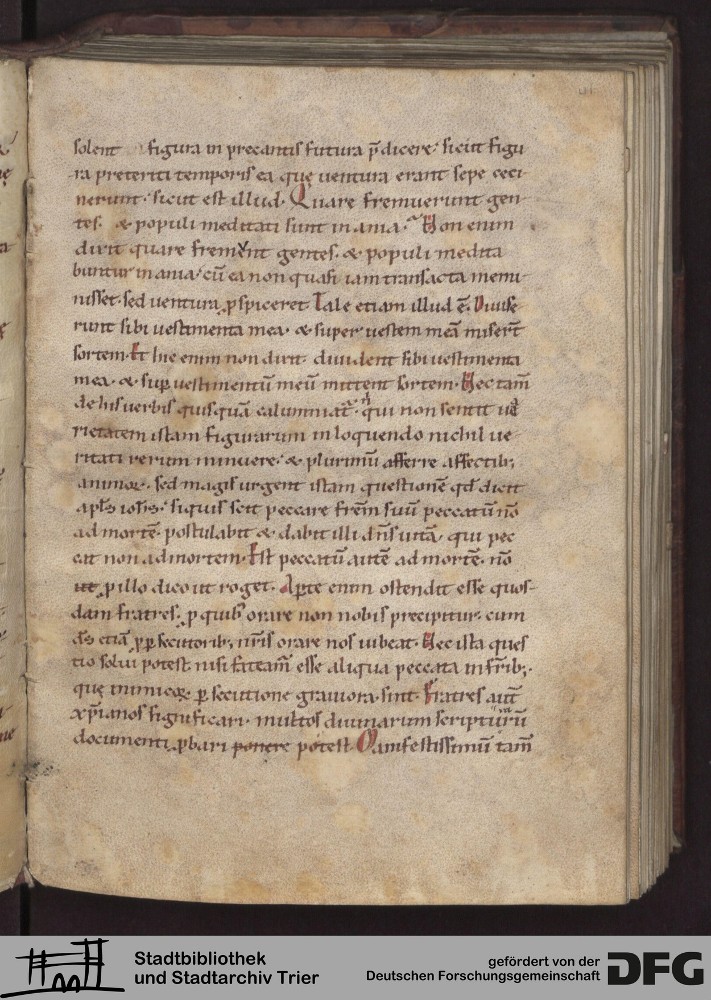 solent figura in precantis futura p̄dicere. sicut figu
ra preteriti temporis ea quę ventura erant sepe ceci
nerunt. sicut est illud. Quare fremuerunt gen
tes. & populi meditati sunt inania. Non enim
dixit quare frement gentes. & populi medita
buntur inania. cū ea non quasi iam transacta memi
nisset. sed ventura ꝓspiceret. Tale etiam illud ē. Diuise
runt sibi uestimenta mea. & super uestem meā misert̄
sortem. Et hic enim non dixit. diuident sibi uestimenta
mea. & suꝑ uestimentū meū mittent sortem. Nec tam̄
de his uerbis quisquā calumniat᷑. qui non sentit ua
rietatem istam figurarum in loquendo nichil ue
ritati rerum minuere. & plurimū afferre affectib;
animoꝝ. sed magis urgent istam questionē qd̄ dicit
apl̄s ioh̄s. siquis scit peccare fr̄em suū peccatū nō
ad mortē. postulabit & dabit illi dn̄s uitā. qui pec
cat non ad mortem. Est peccatū autē ad mortē. nō
ꝓ illo dico ut roget. Aꝑte enim ostendit esse quos
dam fratres. ꝓ quib; orare non nobis precipitur. cum
dn̄s etiā ꝓ ꝑsecutorib; nr̄is orare nos iubeat. Nec ista ques
tio solui potest. nisi fateam᷑ esse aliqua peccata in fr̄ib;.
quę inimicoꝝ ꝑsecutione grauiora sint. Fratres aut̄
xp̄ianos significari. multis diuinarum scripturarū
documentis ꝓbari ponere potest. Manifestissimū tam̄
Stadtbibliothek
und Stadtarchiv Trier
gefördert von der
Deutschen Forschungsgemeinschaft
DFG